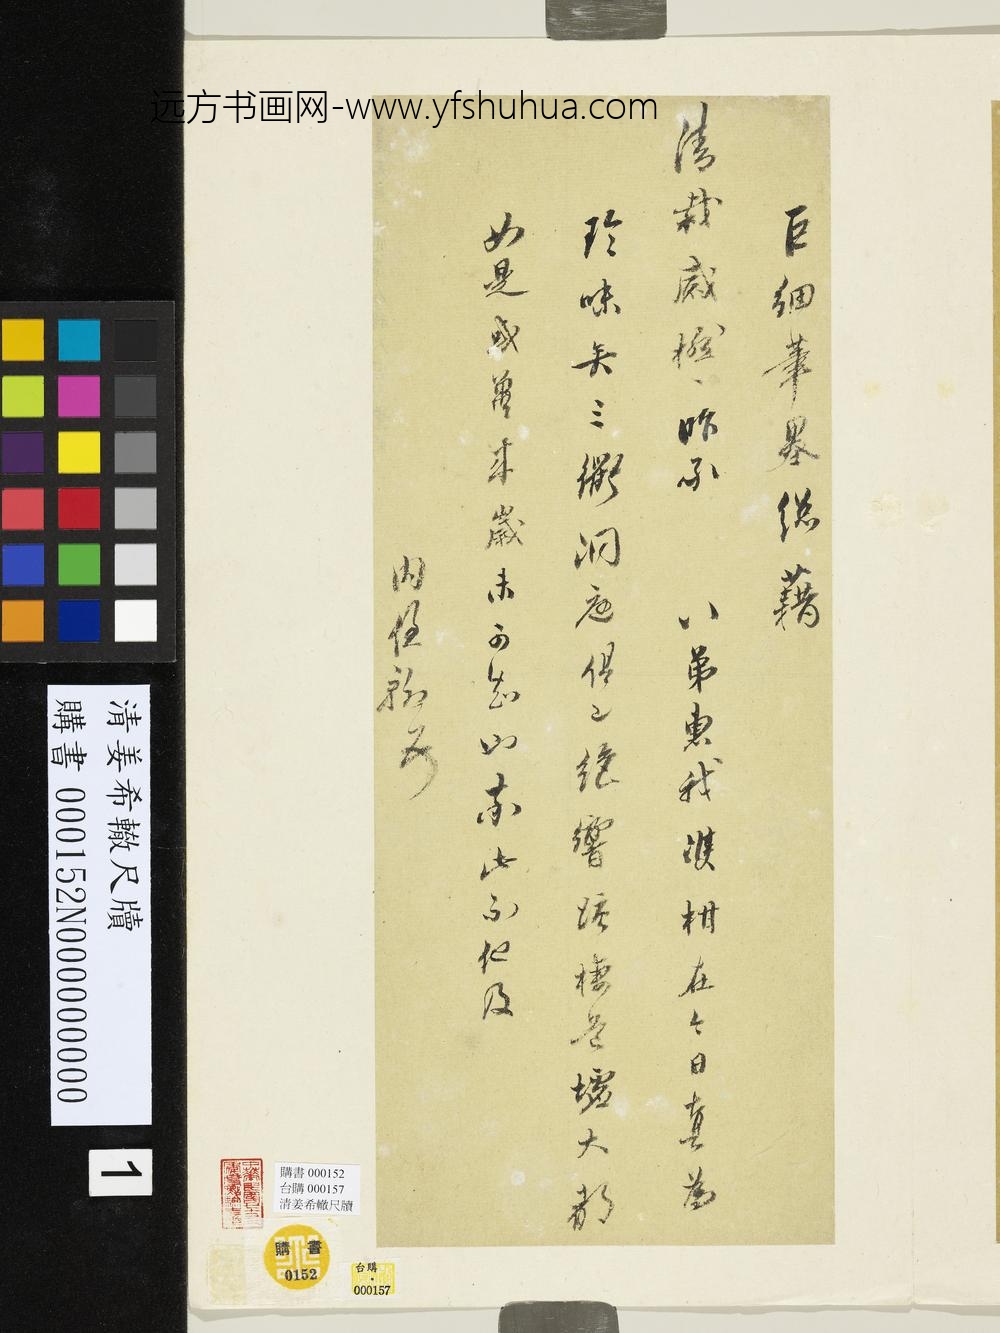 远方书画网-www.yfshuhua.com
巨細筆墨總藉
清裁感 昨承 八弟惠我 柑在今日真為
珍味矣三衢洞庭俱已絕響 棲 墟大都
如是或曾來歲未可知也 此不他及
內
清姜希轍尺牘
購書 000152N000000000
1
購書 000152
台購 000157
清姜希轍尺牘
購書
0152
台購
000157